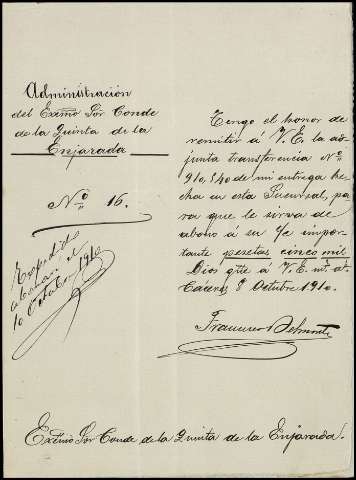 Administracion
del Exmo Sor Conde
de la Quinta de la
Enjarada
No 16.
Tengo el honor de
remitir á V.E. la ad-
junta transferencia No
910,540 de mi entrega
hecha en esta Sucursal, pa-
ra que le sirva de
abono á su v/c impor-
tante pesetas cinco mil
Dios gue á V.E. ms. as.
Cáceres 8 Octubre 1910.
Francisco
10 Octubre 1910
Exmo Sor Conde de la Quinta de la Enjarada.